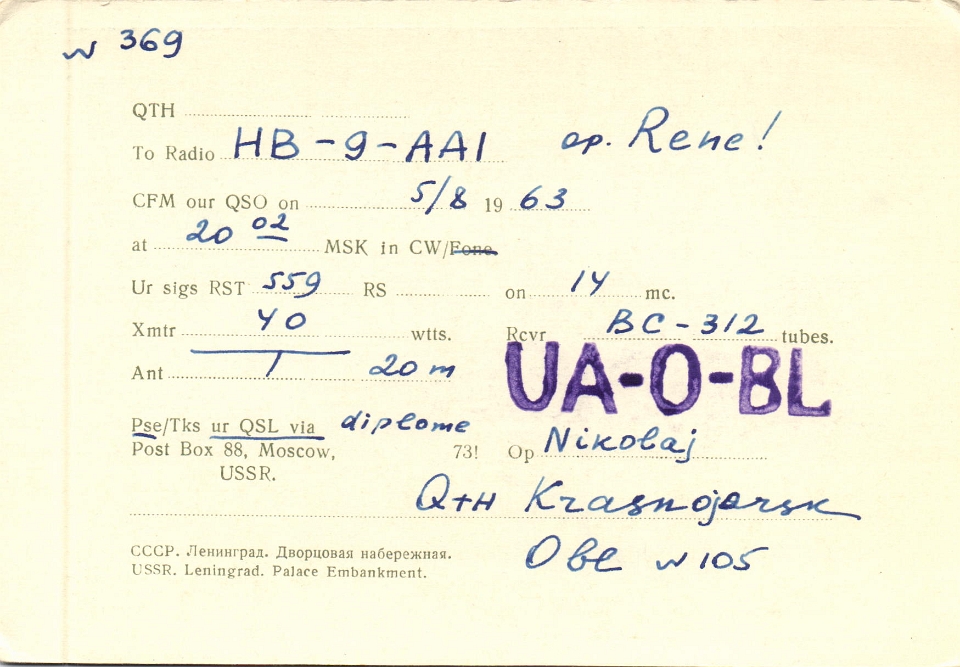 N 369
QTH
To Radio HB-9-AAI op. Rene!
CFM our QSO on 5/8 1963
at 20 02 MSK in CW/Fone
Ur sigs RST 559 RS on 14 mc.
Xmtr 40 wtts. Rcvr BC-312 tubes.
Ant 20 m
UA-O-BL
Pse/Tks ur QSL via diplome
Post Box 88, Moscow, 73! Op Nikolaj
USSR.
QTH Krasnojarsk
Obl N 105
СССР. Ленинград. Дворцовая набережная.
USSR. Leningrad. Palace Embankment.